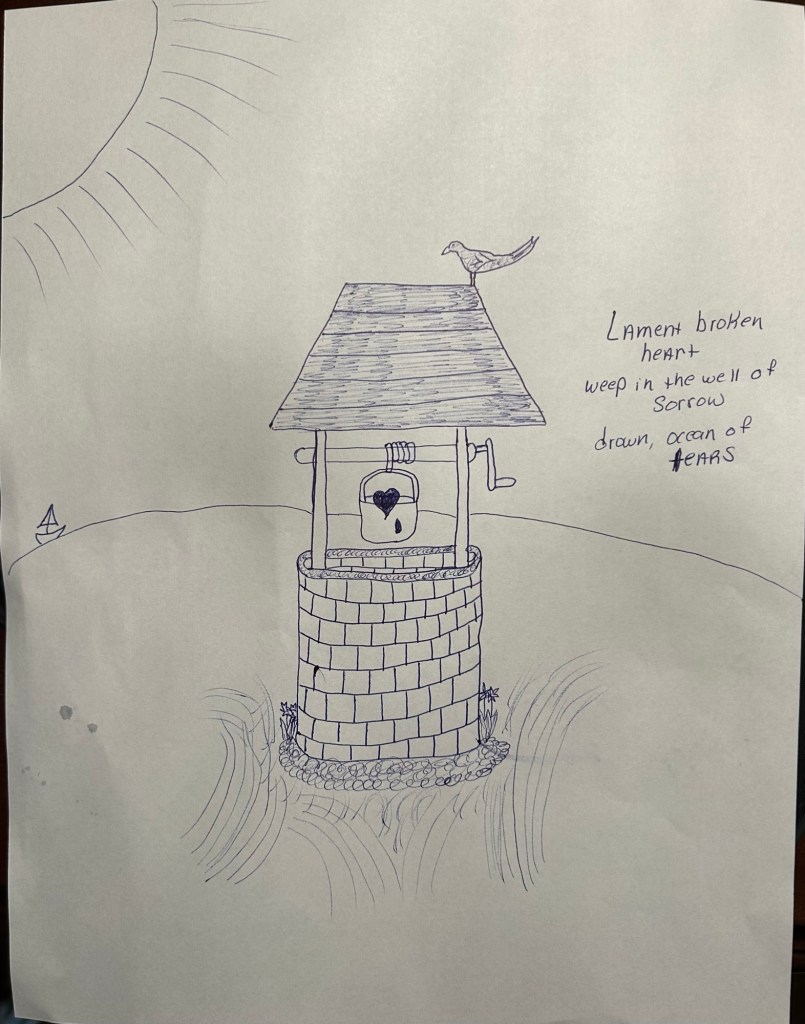 LAment broken
heArt
weep in the well of
Sorrow
drown, ocean of
teARS